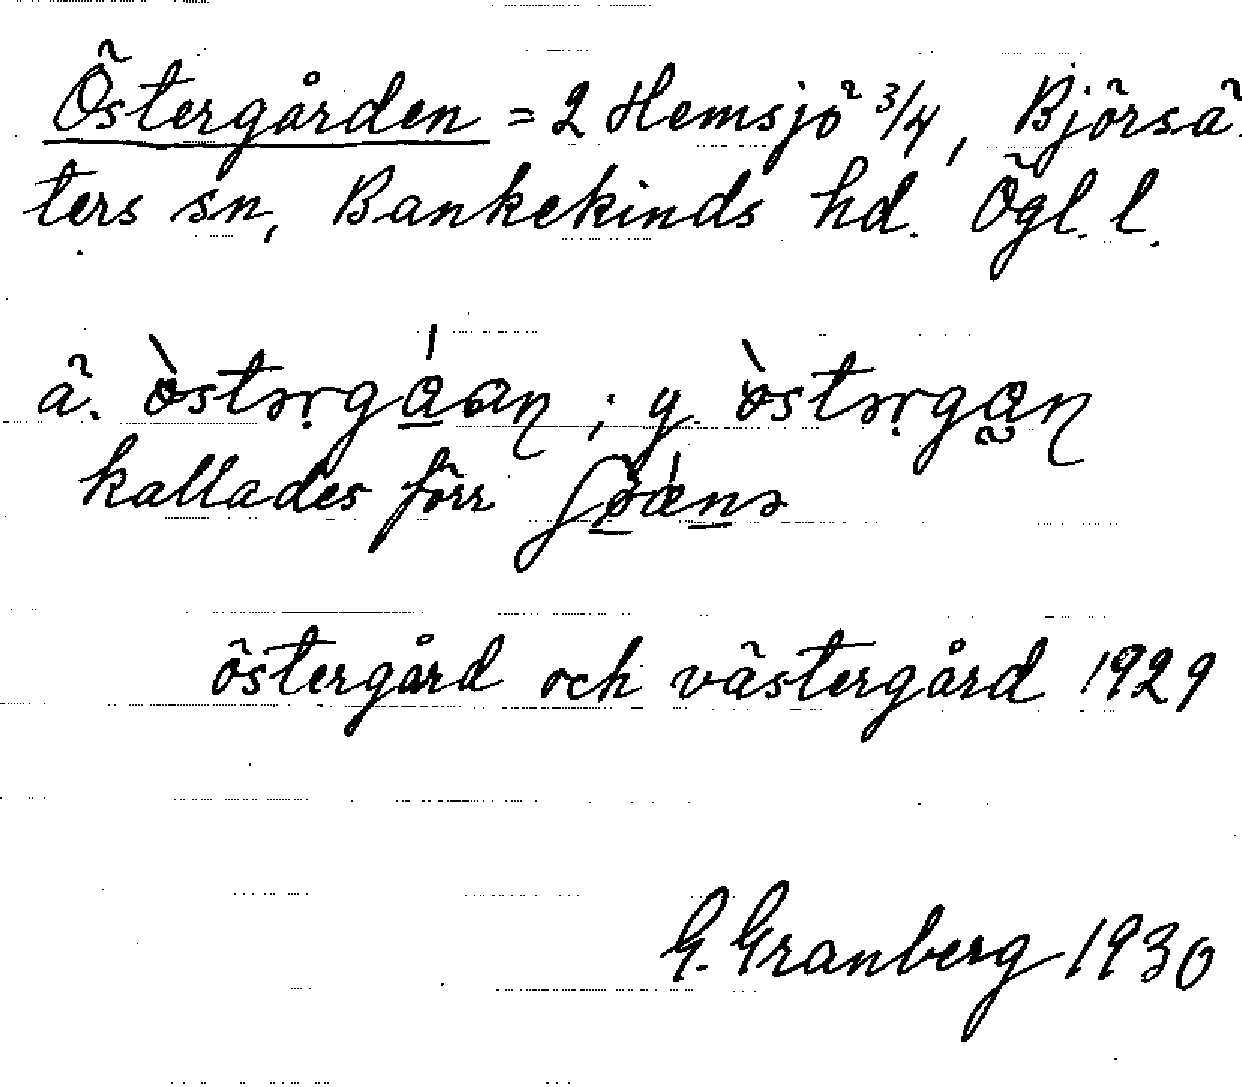 Östergården = 2 Hemsjö 3/4, Björsä-
ters sn, Bankekinds hd. Ögl. l.
ä. ; y.
kallades förr
östergård och västergård 1929
G. Granberg 1930